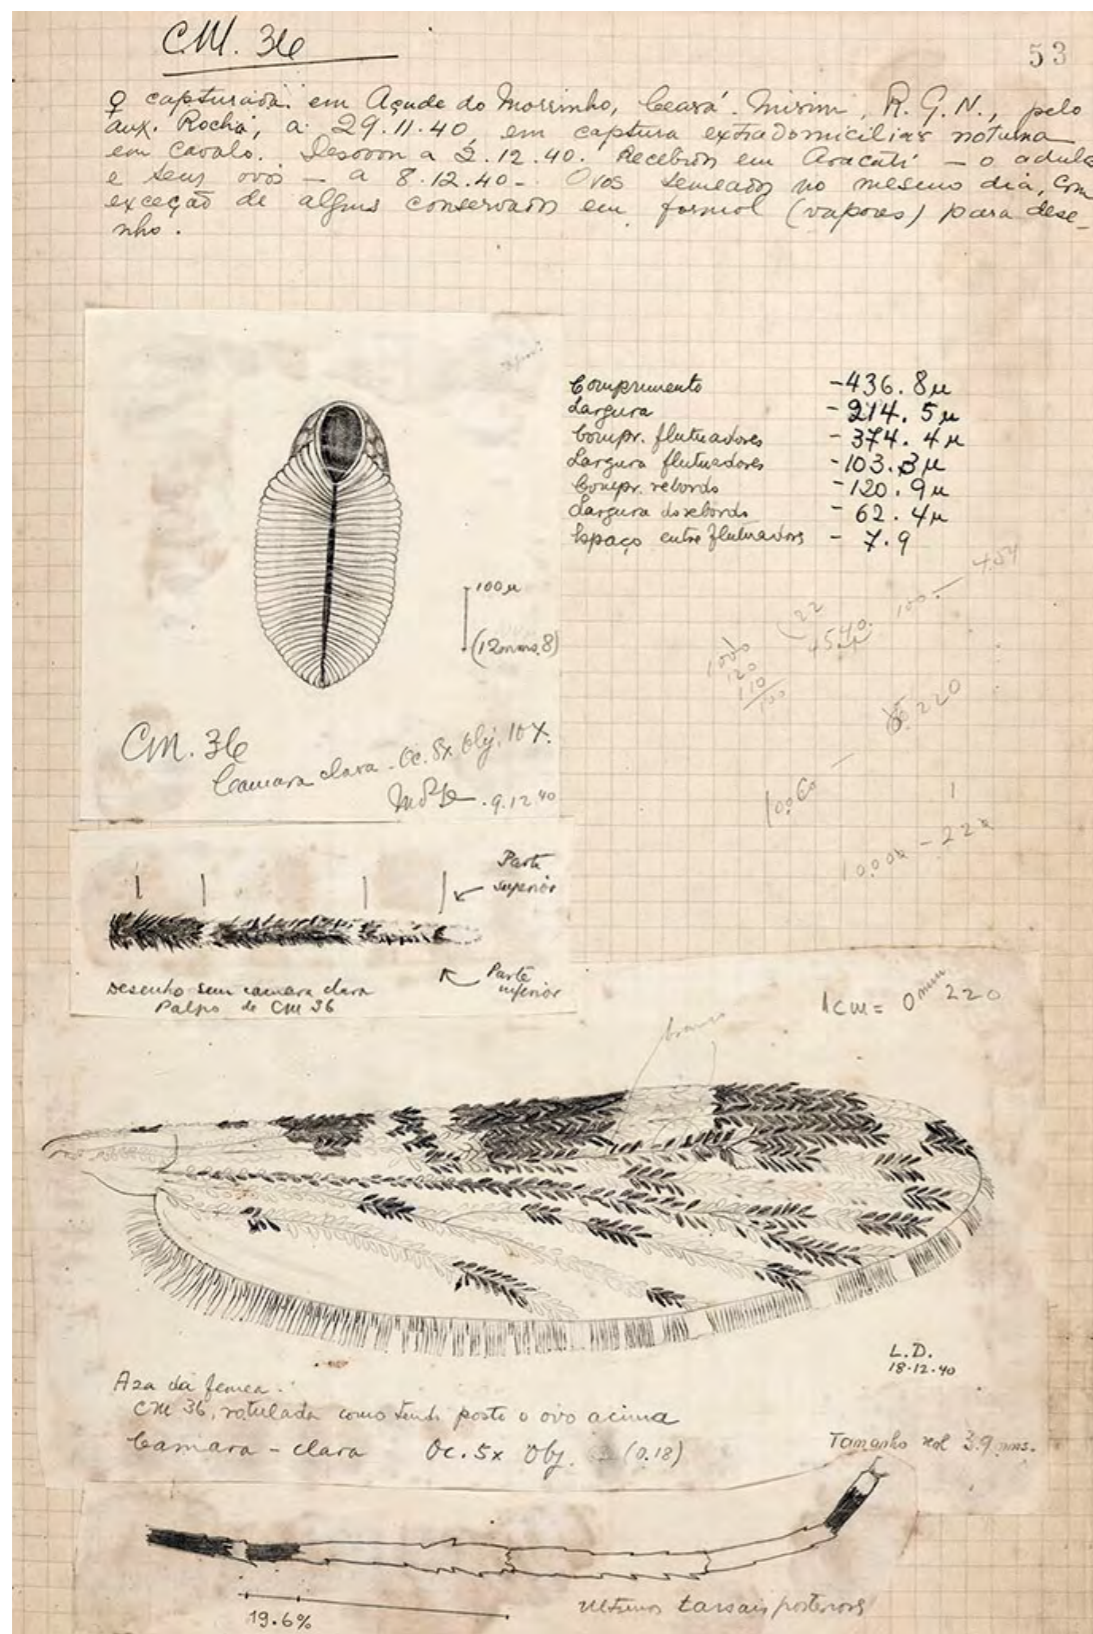 CM. 36
53
♀ capturada em Açude do Morrinho, Ceará Mirim, R.G.N., pelo
aux. Rocha, a 29.11.40, em captura extradomiciliar noturna
em cavalo. Desovou a 2.12.40. Recebidos em Aracati – o adulto
e seus ovos – a 8.12.40 – Ovos semeados no mesmo dia, com
exceção de alguns conservados em formol (vapores) para dese-
nho.
Comprimento -436.8µ
Largura -214.5µ
Compr. flutuadores -374.4µ
Largura flutuadores -103.3µ
Compr. rebordo -120.9µ
Largura do rebordo - 62.4µ
Espaço entre flutuadores - 7.9
100µ
(12mms.8)
CM. 36
Camara clara - Oc. 8x Obj. 10X.
9.12.40
4.54
100 -
22
4540
1000
120
110
100
220
1
10.000 - 22
Parte
superior
Parte
inferior
Desenho sem camara clara
Palpo de CM 36
1cm = 0mm 220
branco
L.D.
18-12-40
Aza da femea.
CM 36, rotulada como tendo posto o ovo acima
Camara - clara Oc. 5x Obj. (0.18)
Tamanho rel 3.9 mms.
19.6%
Ultimos tarsais posteriores